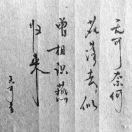 无可奈何
花落去似
曾相识燕
归来